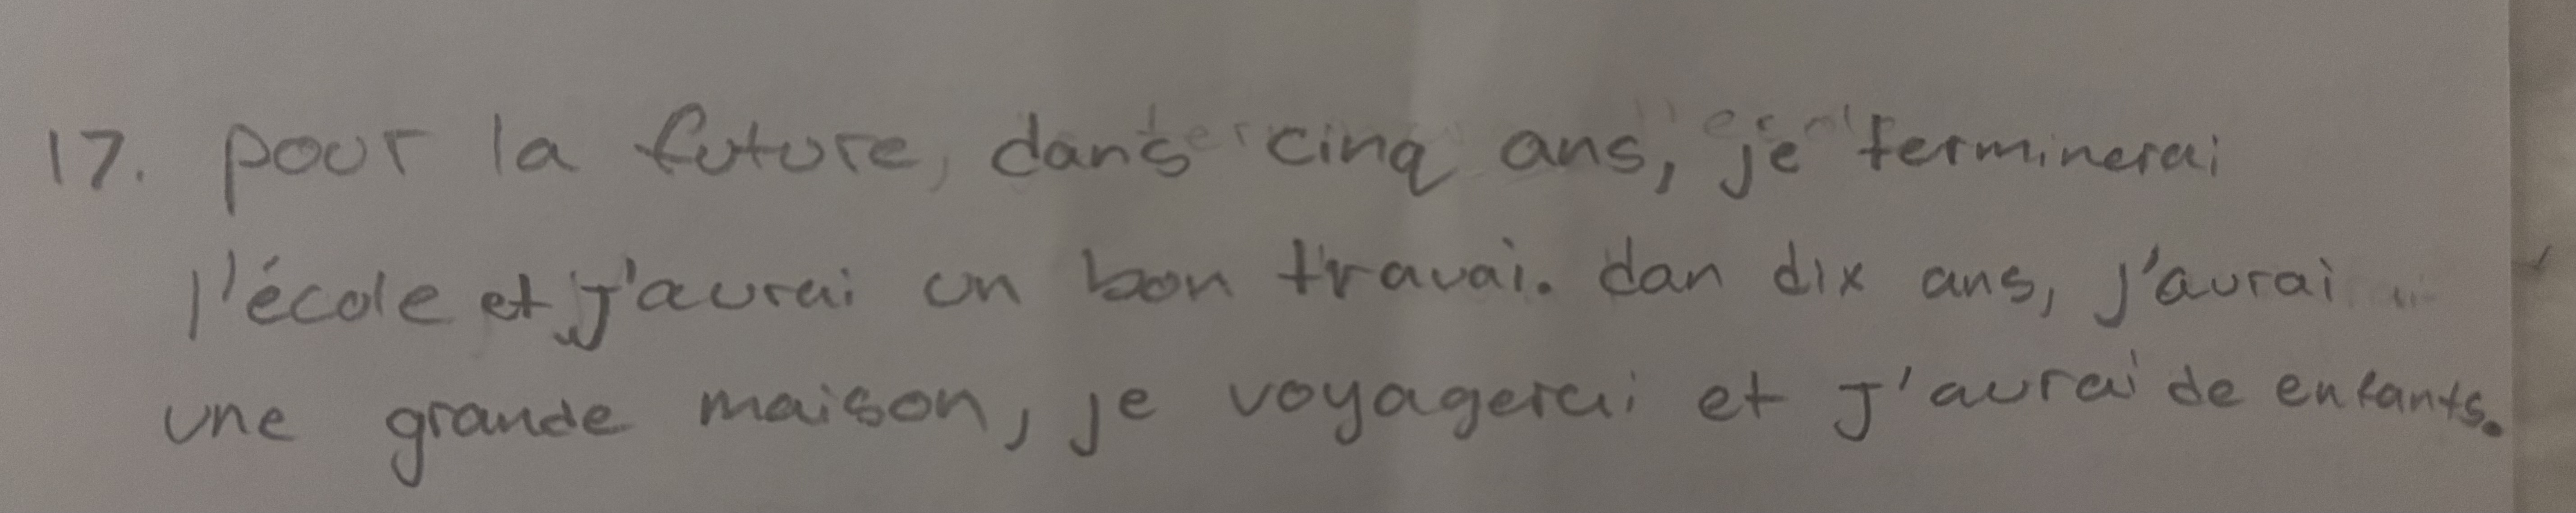 17. pour la future, dans cinq ans, je terminerai
l'école et j'aurai un bon travai. dan dix ans, j'aurai
une grande maison, je voyagerai et j'aurai de enfants.